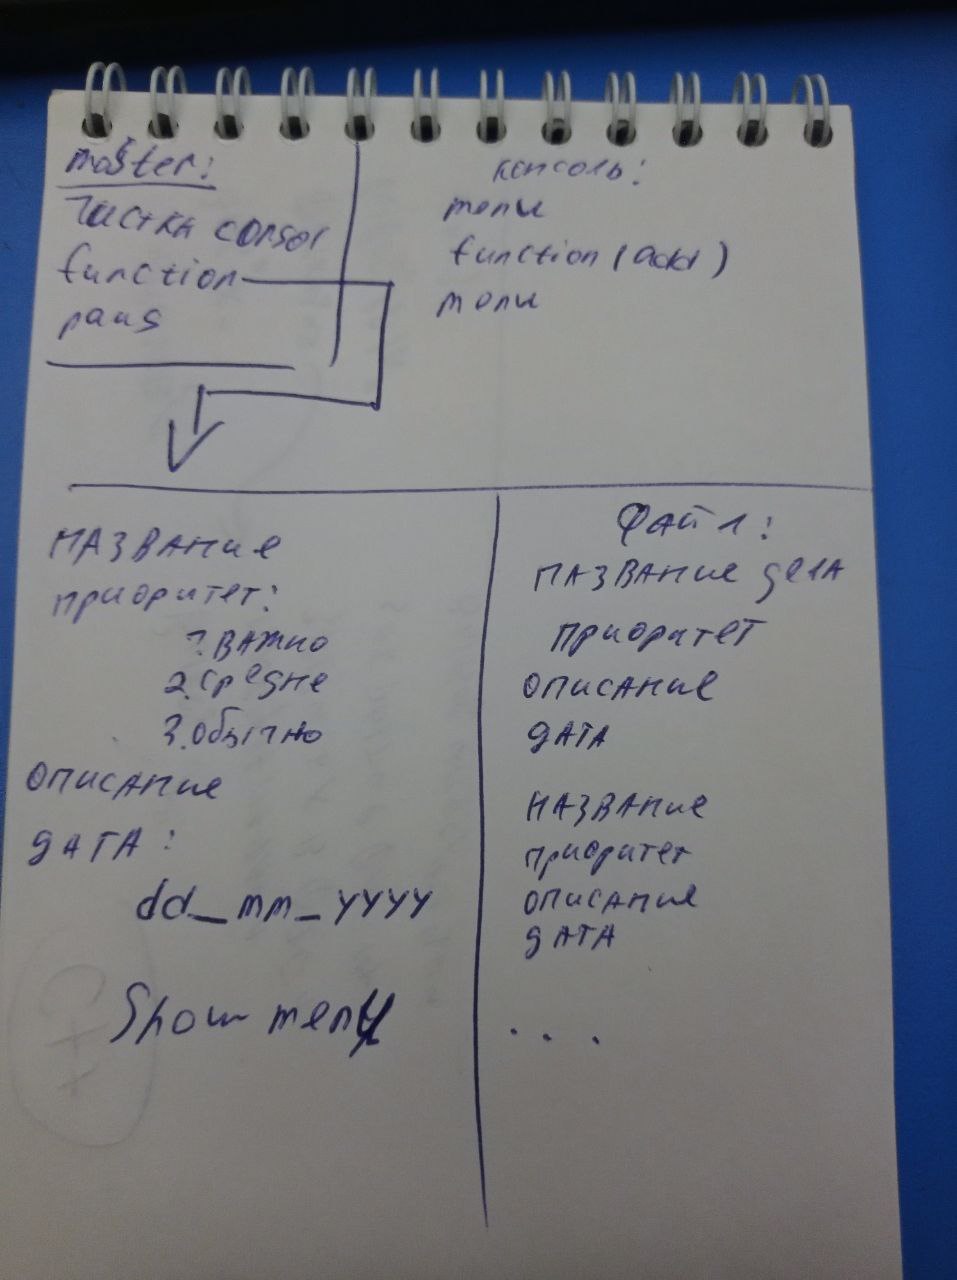 master:
чистка consol
function
paus
консоль:
menu
function (add)
menu
название
приоритет:
1. важно
2. средне
3. обычно
описание
дата:
dd_mm_yyyy
Show menu
Файл:
название дела
приоритет
описание
дата
название
приоритет
описание
дата
...